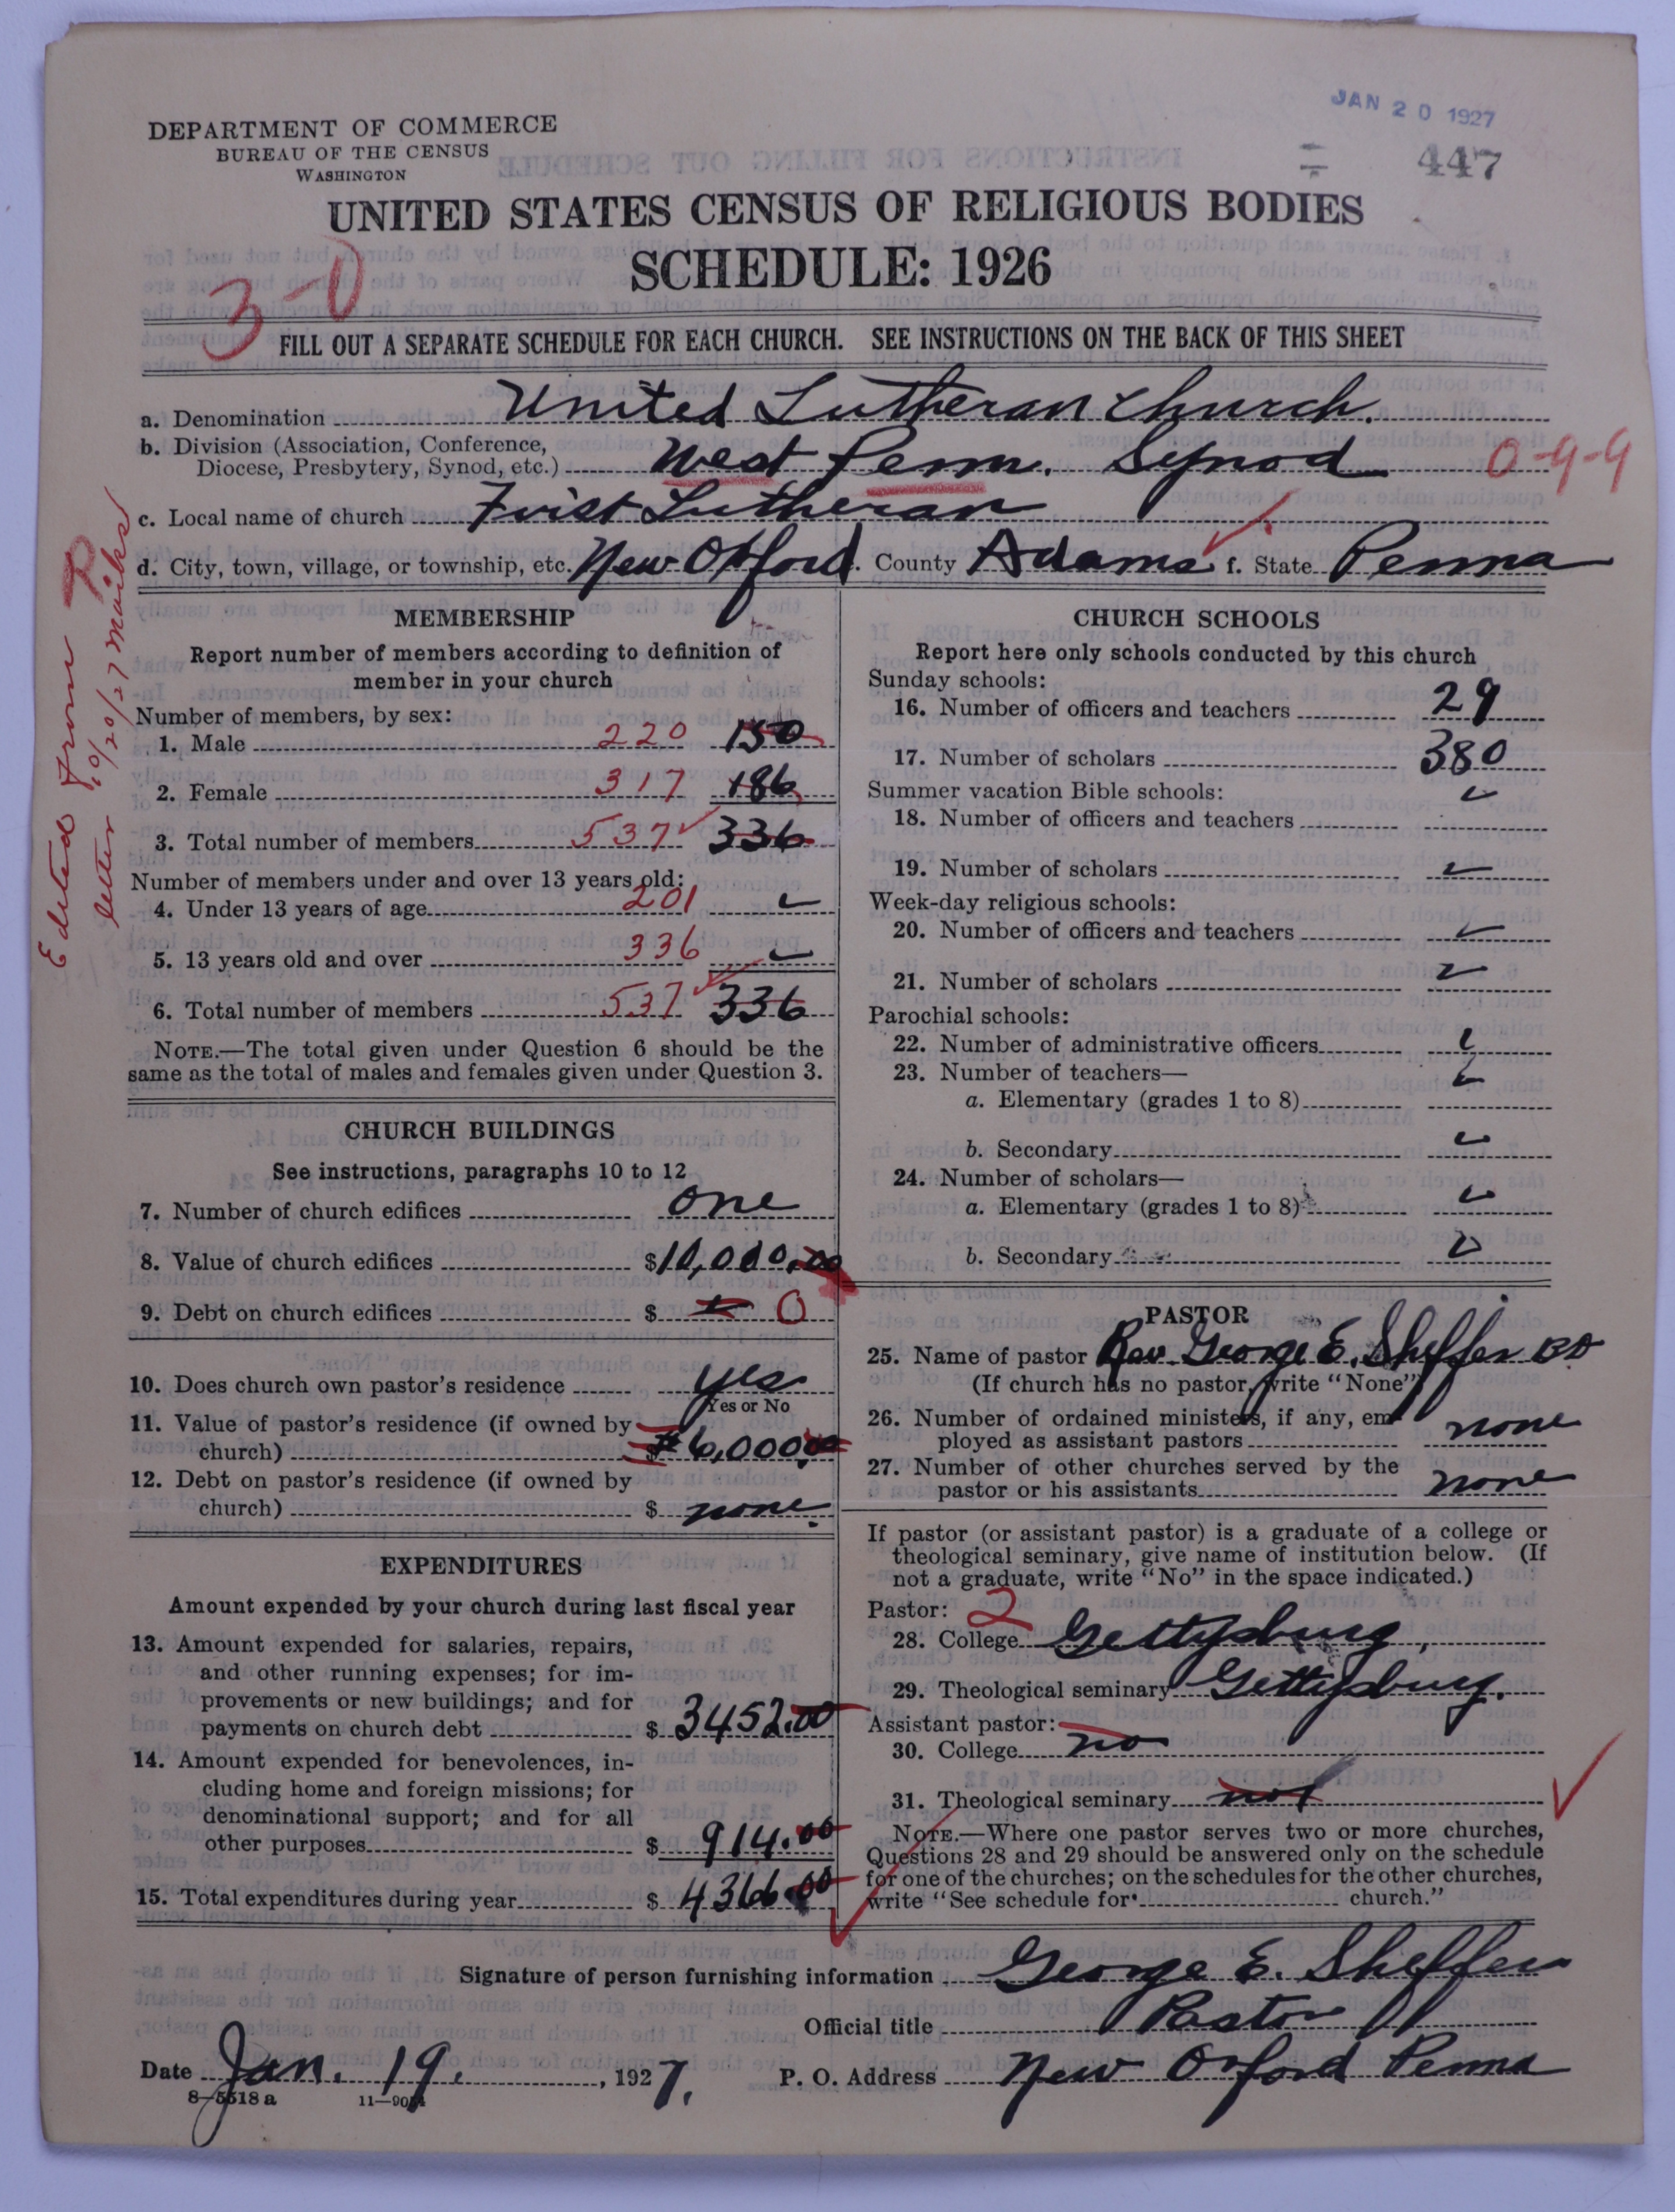 JAN 20 1927
DEPARTMENT OF COMMERCE
BUREAU OF THE CENSUS
WASHINGTON
447
UNITED STATES CENSUS OF RELIGIOUS BODIES
SCHEDULE: 1926
3-0
FILL OUT A SEPARATE SCHEDULE FOR EACH CHURCH. SEE INSTRUCTIONS ON THE BACK OF THIS SHEET
a. Denomination United Lutheran Church.
b. Division (Association, Conference,
Diocese, Presbytery, Synod, etc.) West Penn. Synod 0-9-9
c. Local name of church First Lutheran
d. City, town, village, or township, etc. New Oxford. County Adams f. State Penna
Edited from
letter 10/20/27 marks
MEMBERSHIP
Report number of members according to definition of
member in your church
Number of members, by sex:
1. Male 220 150
2. Female 317 186
3. Total number of members 537 336
Number of members under and over 13 years old:
4. Under 13 years of age 201
5. 13 years old and over 336
6. Total number of members 537 336
NOTE.—The total given under Question 6 should be the
same as the total of males and females given under Question 3.
CHURCH BUILDINGS
See instructions, paragraphs 10 to 12
7. Number of church edifices one
8. Value of church edifices $10,000.00
9. Debt on church edifices $ 0
10. Does church own pastor's residence yes
Yes or No
11. Value of pastor's residence (if owned by
church) $6,000.00
12. Debt on pastor's residence (if owned by
church) $ none.
EXPENDITURES
Amount expended by your church during last fiscal year
13. Amount expended for salaries, repairs,
and other running expenses; for im-
provements or new buildings; and for
payments on church debt $ 3452.00
14. Amount expended for benevolences, in-
cluding home and foreign missions; for
denominational support; and for all
other purposes $ 914.00
15. Total expenditures during year $ 4366.00
CHURCH SCHOOLS
Report here only schools conducted by this church
Sunday schools:
16. Number of officers and teachers 29
17. Number of scholars 380
Summer vacation Bible schools:
18. Number of officers and teachers
19. Number of scholars
Week-day religious schools:
20. Number of officers and teachers
21. Number of scholars
Parochial schools:
22. Number of administrative officers
23. Number of teachers—
a. Elementary (grades 1 to 8)
b. Secondary
24. Number of scholars—
a. Elementary (grades 1 to 8)
b. Secondary
PASTOR
25. Name of pastor Rev. George E. Sheffer BD
(If church has no pastor, write "None")
26. Number of ordained ministers, if any, em-
ployed as assistant pastors none
27. Number of other churches served by the
pastor or his assistants none
If pastor (or assistant pastor) is a graduate of a college or
theological seminary, give name of institution below. (If
not a graduate, write "No" in the space indicated.)
Pastor: 2
28. College Gettysburg,
29. Theological seminary Gettysburg.
Assistant pastor:
30. College no
31. Theological seminary not
NOTE.—Where one pastor serves two or more churches,
Questions 28 and 29 should be answered only on the schedule
for one of the churches; on the schedules for the other churches,
write "See schedule for church."
Signature of person furnishing information George E. Sheffer
Official title Pastor
Date Jan. 19. , 1927. P. O. Address New Oxford Penna
8—5518 a 11—9054